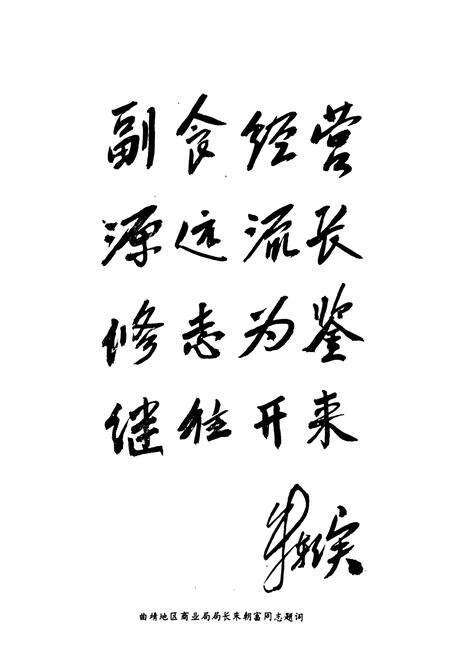 副食经营
源远流长
修志为鉴
继往开来
朱朝富
曲靖地区商业局局长朱朝富同志题词